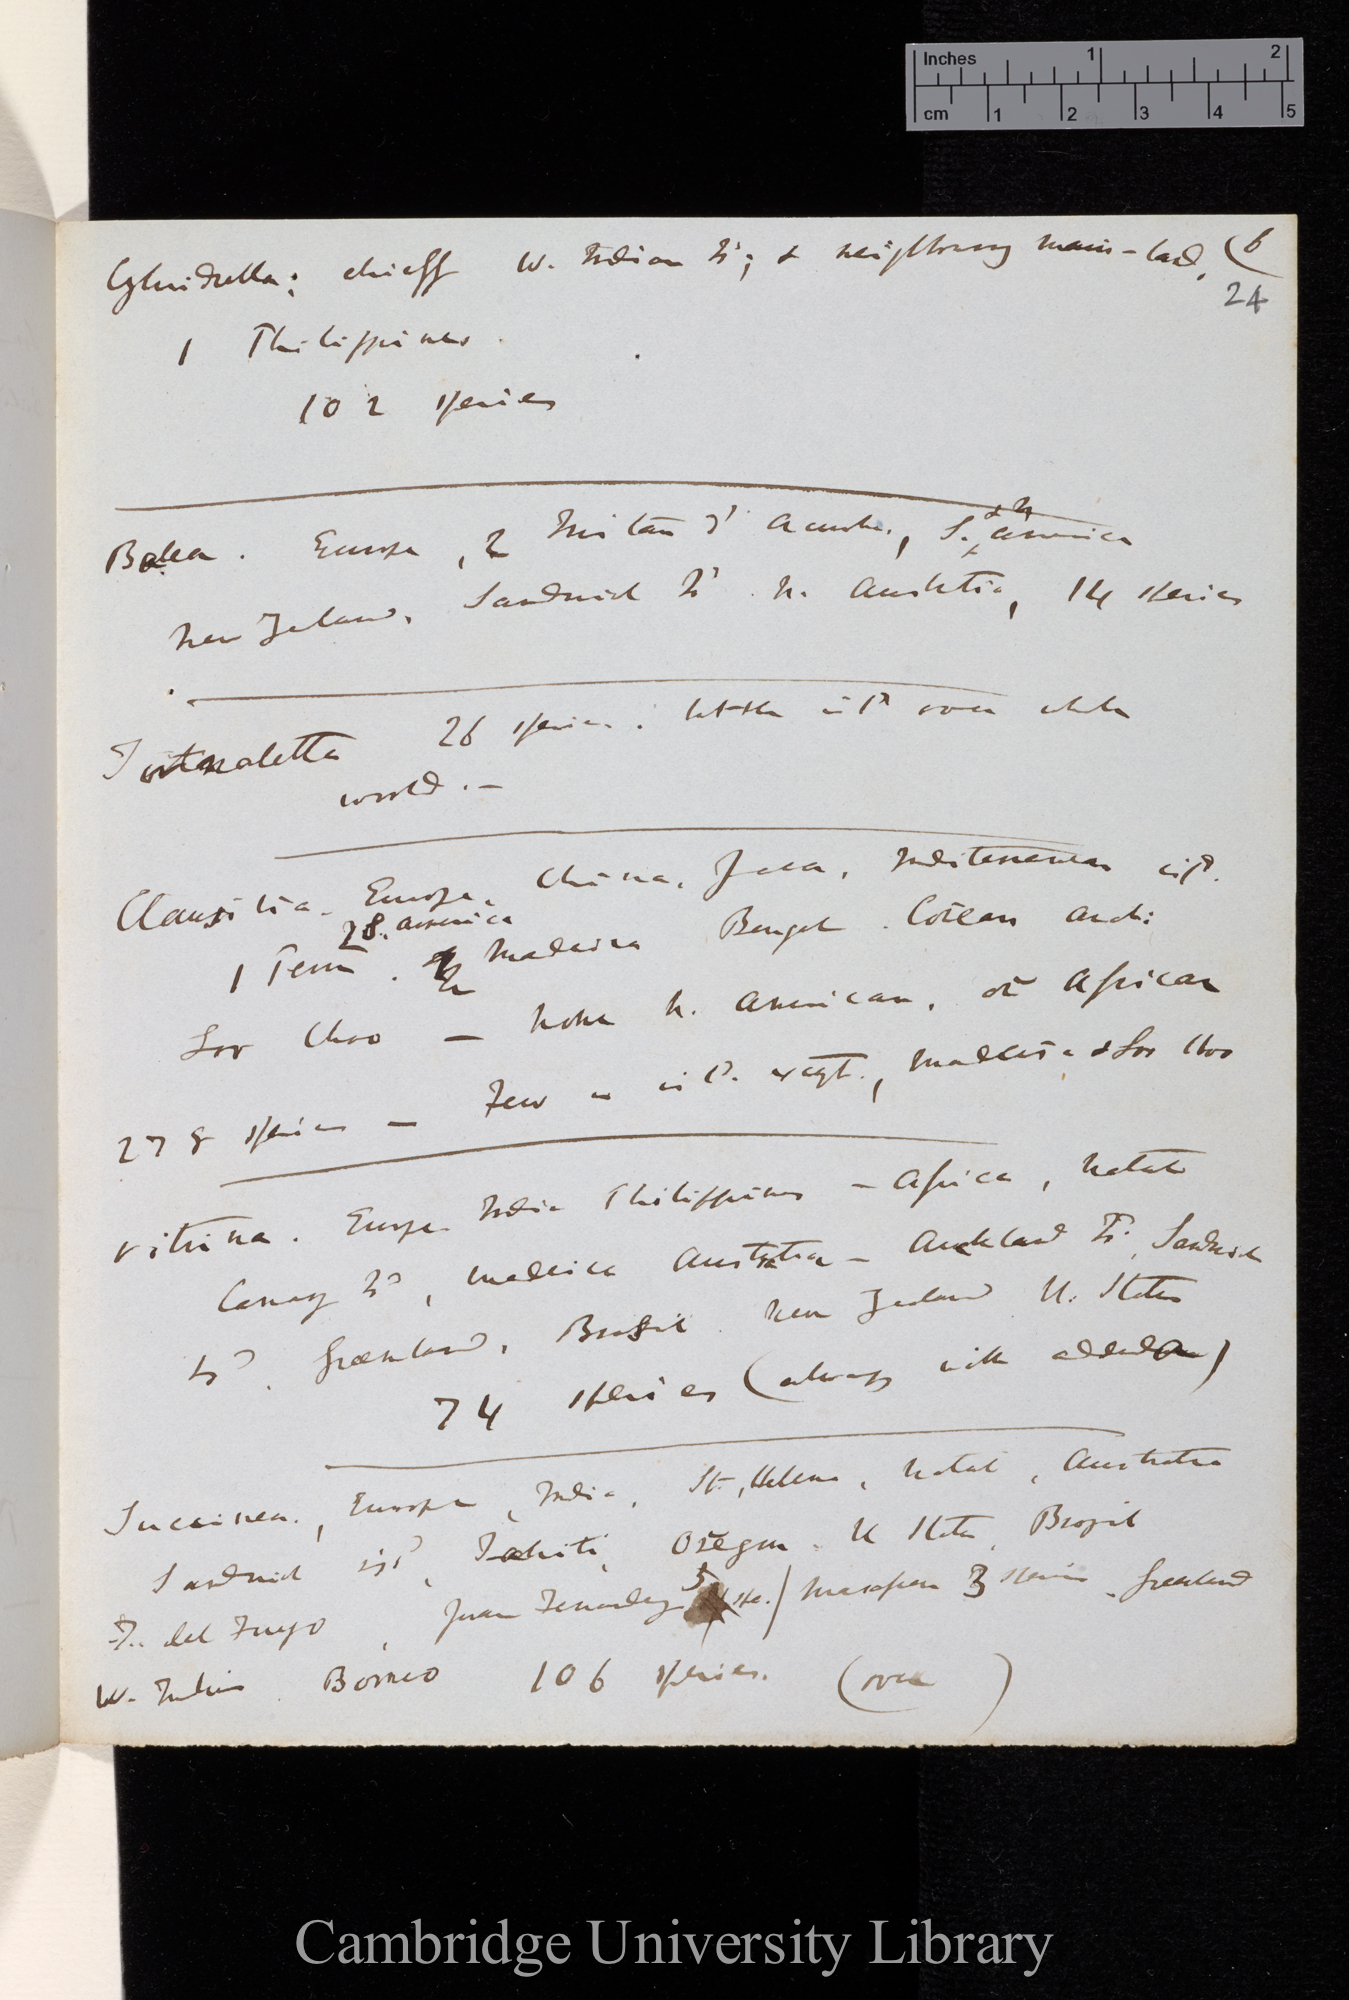 Inches 1 2
cm 1 2 3 4 5
(6
24
Cylindrella; chiefly W. Indian Isd; & neighbouring main-land,
1 Philippines.
102 species
Balea. Europe, 2 Tristan d' Acunha, S. & N. America
New Zealand, Sandwich Isd. N. Australia, 14 species
Tornatellina 26 species. isld over whole
world. —
Clausilia. Europe, China, Java, Mediterranean isld.
2 S. America
1 Peru. Madeira Bengal. Corean Arch:
Loo Choo — None N. American, or African
278 species — Few in isld. except., Madeira & Loo Choo
Vitrina. Europe India Philippines — Africa, Natal
Canary Isd, Madeira Australia — Auckland Isd. Sandwich
Isd. Greenland, Brazil New Zealand U. States
74 species (always with addenda)
Succinea., Europe, India, St. Helena, Natal, Australia
Sandwich isld, Tahiti, Oregon. U States, Brazil
T. del Fuego, Juan Fernandez 5 / Masafuera 3 species. Greenland
W. Indies. Borneo 106 species. (over)
Cambridge University Library